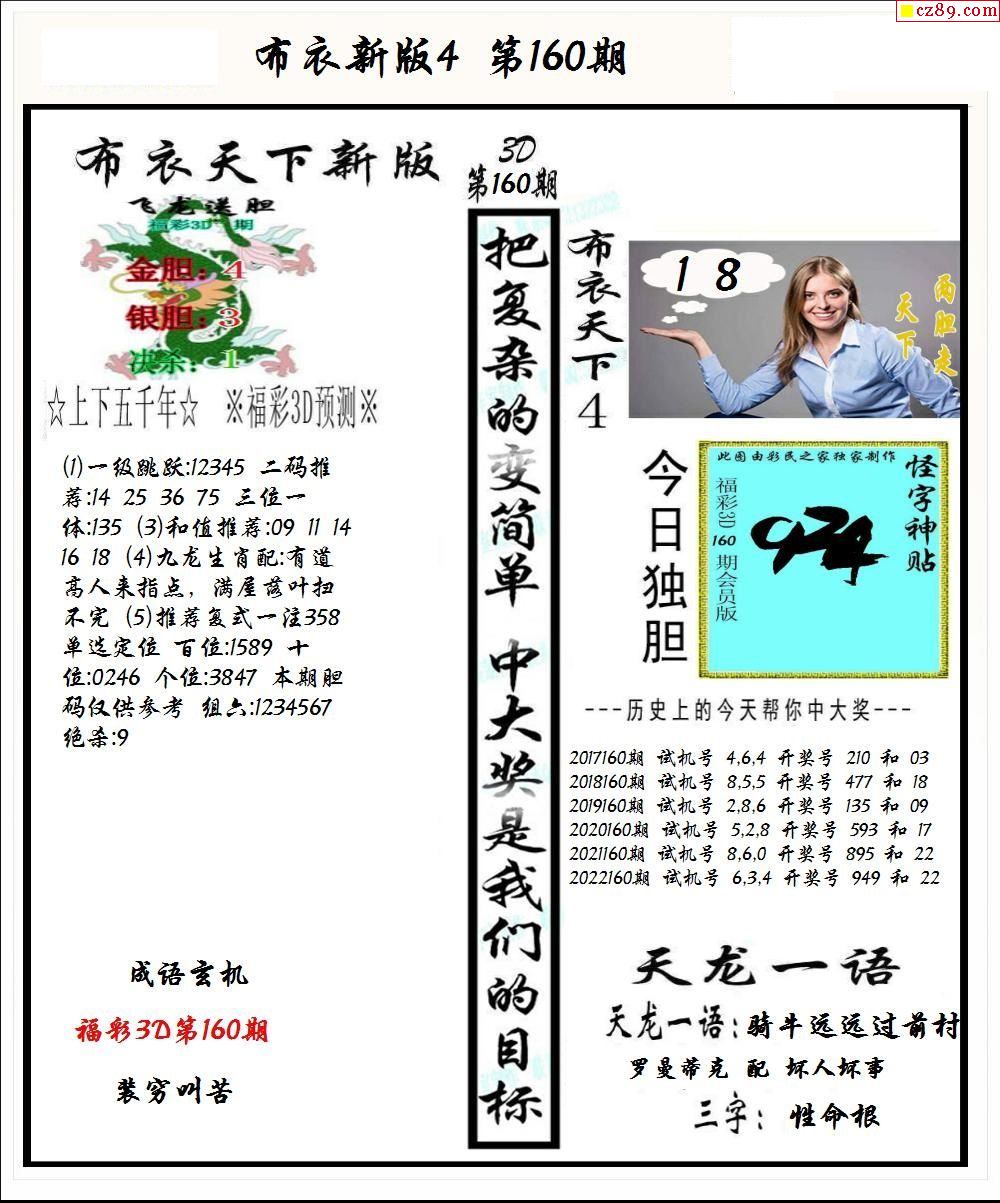 cz89.com
布衣新版4 第160期
布衣天下新版
飞龙送胆
福彩3D 期
金胆：4
银胆：3
决杀：1
☆上下五千年☆ ※福彩3D预测※
(1)一级跳跃:12345 二码推
荐:14 25 36 75 三位一
体:135 (3)和值推荐:09 11 14
16 18 (4)九龙生肖配:有道
高人来指点，满屋落叶扫
不完 (5)推荐复式一注358
单选定位 百位:1589 十
位:0246 个位:3847 本期胆
码仅供参考 组六:1234567
绝杀:9
成语玄机
福彩3D第160期
装穷叫苦
3D
第160期
把复杂的变简单 中大奖是我们的目标
布衣天下4
1 8
两胆走
天下
今日独胆
此图由彩民之家独家制作
怪字神贴
福彩3D 160 期会员版
---历史上的今天帮你中大奖---
2017160期 试机号 4,6,4 开奖号 210 和 03
2018160期 试机号 8,5,5 开奖号 477 和 18
2019160期 试机号 2,8,6 开奖号 135 和 09
2020160期 试机号 5,2,8 开奖号 593 和 17
2021160期 试机号 8,6,0 开奖号 895 和 22
2022160期 试机号 6,3,4 开奖号 949 和 22
天龙一语
天龙一语:骑牛远远过前村
罗曼蒂克 配 坏人坏事
三字：性命根